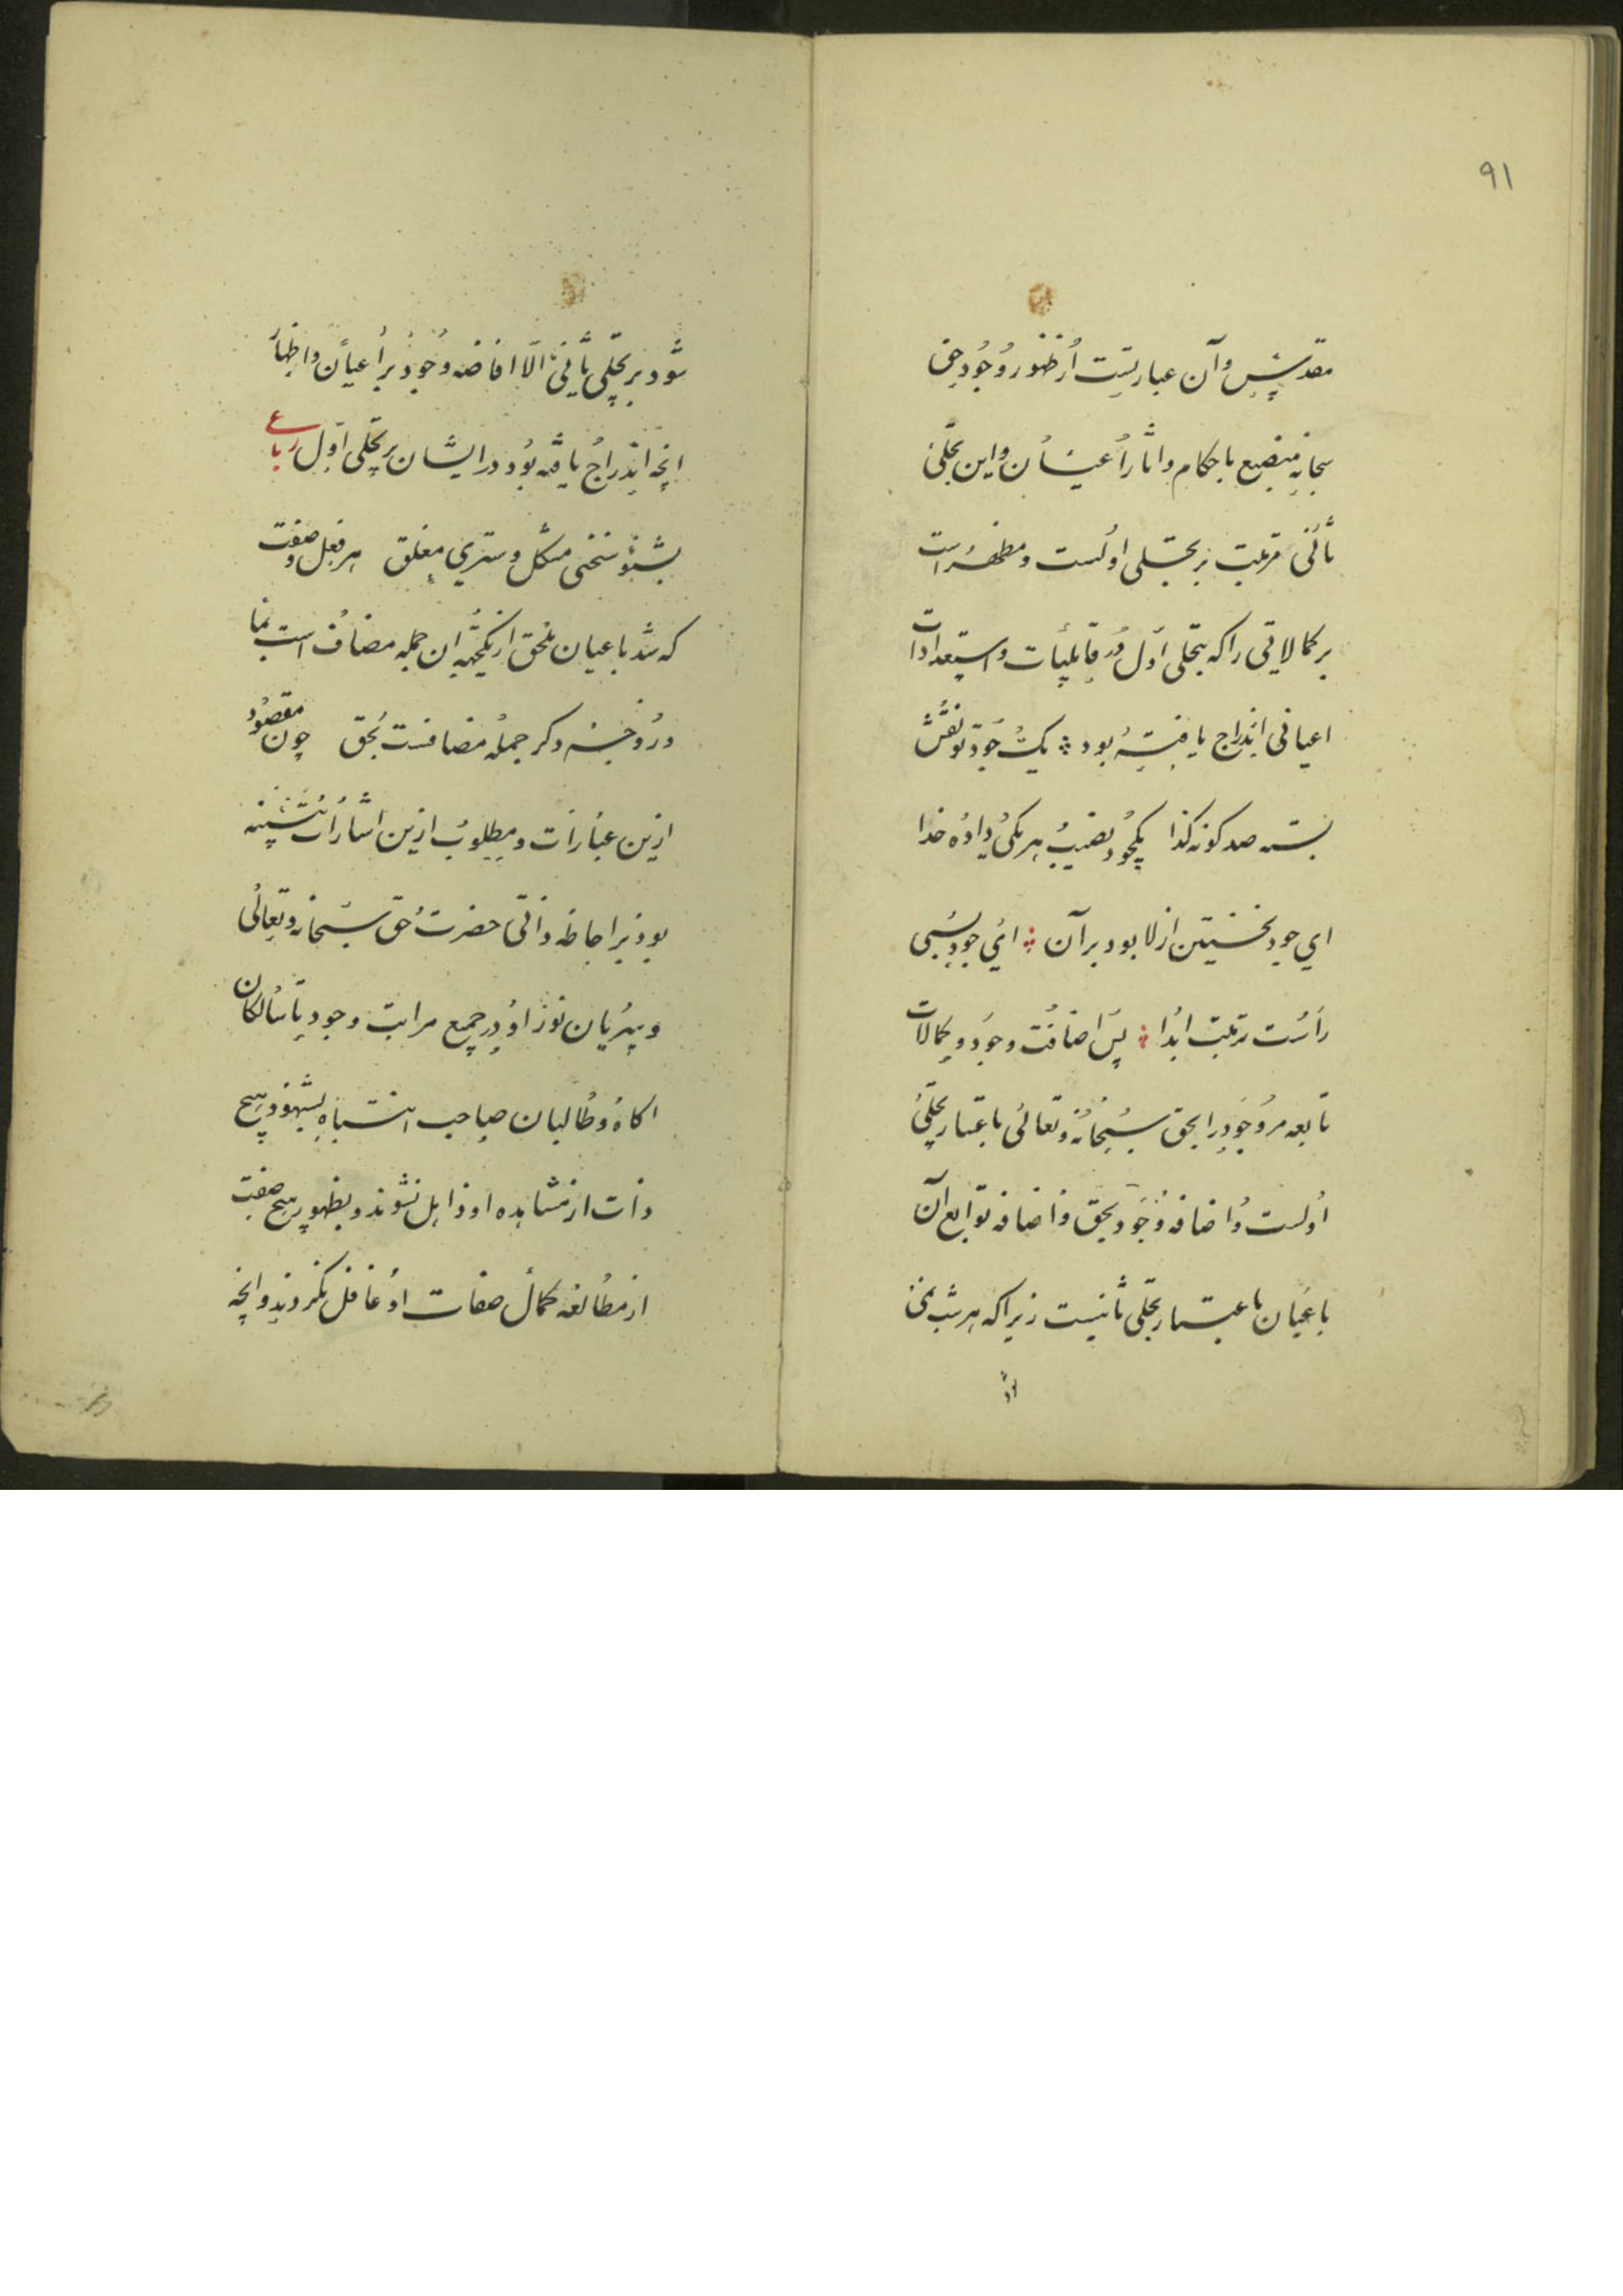 ٩١
مقدّس و آن عبارتست از ظهور وجود حق
سبحانه منصبغ باحكام و اثار اعیان و این تجلی
ثانی مترتبت بر تجلی اولست و مظهر است
بر كمالاتی را كه بتجلی اول در قابلیات و استعدادات
اعیانی اندراج یافته بود ؞ یك جود تو نقش
بسته صد كونه كدا یكجود نصیب هر یكی داده خدا
ای جود نخستین ازلا بود بر آن ؞ این جود پسین
راست ترتب ابدا ؞ پس اضافت وجود و كمالات
تابعه مر وجود را بحق سبحانه و تعالی باعتبار تجلی
اولست و اضافه وجود بحق و اضافه توابع آن
باعیان باعتبار تجلی ثانیست زیرا كه مترتب نمی
شود
شود بر تجلی ثانی الّا افاضه وجود بر اعیان و اظهار
انچه اندراج یافته بود در ایشان بر تجلی اول رباعی
بشنو سخنی مشكل و سرّی مغلق هر فعل و صفت
كه شد باعیان ملحق از یكجهه ان جمله مضاف است بما
وز وجه دكر جمله مضافست بحق چون مقصود
ازین عبارات و مطلوب ازین اشارات تنبیه
بود بر احاطه ذاتی حضرت حق سبحانه و تعالی
و سریان نور او در جمیع مراتب وجود تا سالكان
اكاه و طالبان صاحب انتباه بشهود هیچ
ذات از مشاهده او ذاهل نشوند و بظهور هیچ صفت
از مطالعه كمال صفات او غافل نكردند و انچه